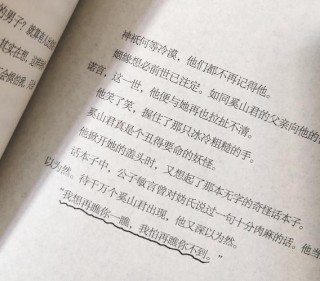 的男子？就算私人
其实注想，这
神祇何等冷漠，他们都不再记得他。
姻缘想必前世已注定。如同奚山君的父亲向他的
诺言，这一世，他便与她再也拉扯不清。
他笑了笑，握住了那只冰冷粗糙的手。
奚山君真是个丑得要命的妖怪。
他掀开她的盖头时，又想起了那本无字的奇怪话本子。
话本子中，公子敏言曾对访氏说过一句十分肉麻的话。他当
以为然。待千万个奚山君出现，他又深以为然。
“我想再瞧你一瞧，我怕再瞧你不到。”